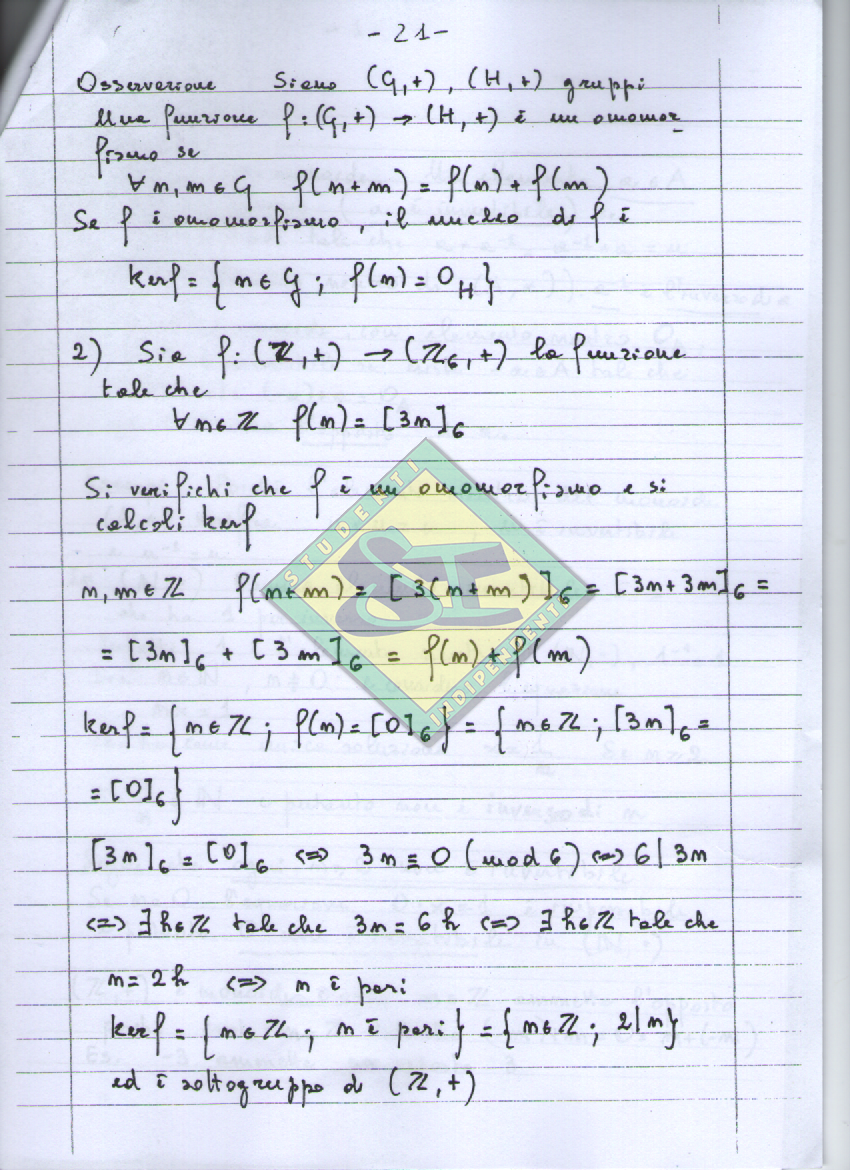 - 21 -
Osservazione Siano (G,+), (H,+) gruppi
Una funzione f: (G,+) → (H,+) è un omomor
fismo se
∀ n, m ∈ G f(n+m) = f(n) + f(m)
Se f è omomorfismo, il nucleo di f è
Kerf = { n ∈ G ; f(n) = 0_H }
2) Sia f: (ℤ,+) → (ℤ₆,+) la funzione
tale che
∀ n ∈ ℤ f(n) = [3n]₆
Si verifichi che f è un omomorfismo e si
calcoli kerf
n, m ∈ ℤ f(n+m) = [3(n+m)]₆ = [3n+3m]₆ =
= [3n]₆ + [3m]₆ = f(n) + f(m)
Kerf = { n ∈ ℤ ; f(n) = [0]₆ } = { n ∈ ℤ ; [3n]₆ =
= [0]₆ }
[3n]₆ = [0]₆ ⇔ 3n ≡ 0 (mod 6) ⇔ 6 | 3n
⇔ ∃ h ∈ ℤ tale che 3n = 6h ⇔ ∃ h ∈ ℤ tale che
n = 2h ⇔ n è pari
Kerf = { n ∈ ℤ ; n è pari } = { n ∈ ℤ ; 2 | n }
ed è sottogruppo di (ℤ,+)
STUDENTI
INDIPENDENTI
SI